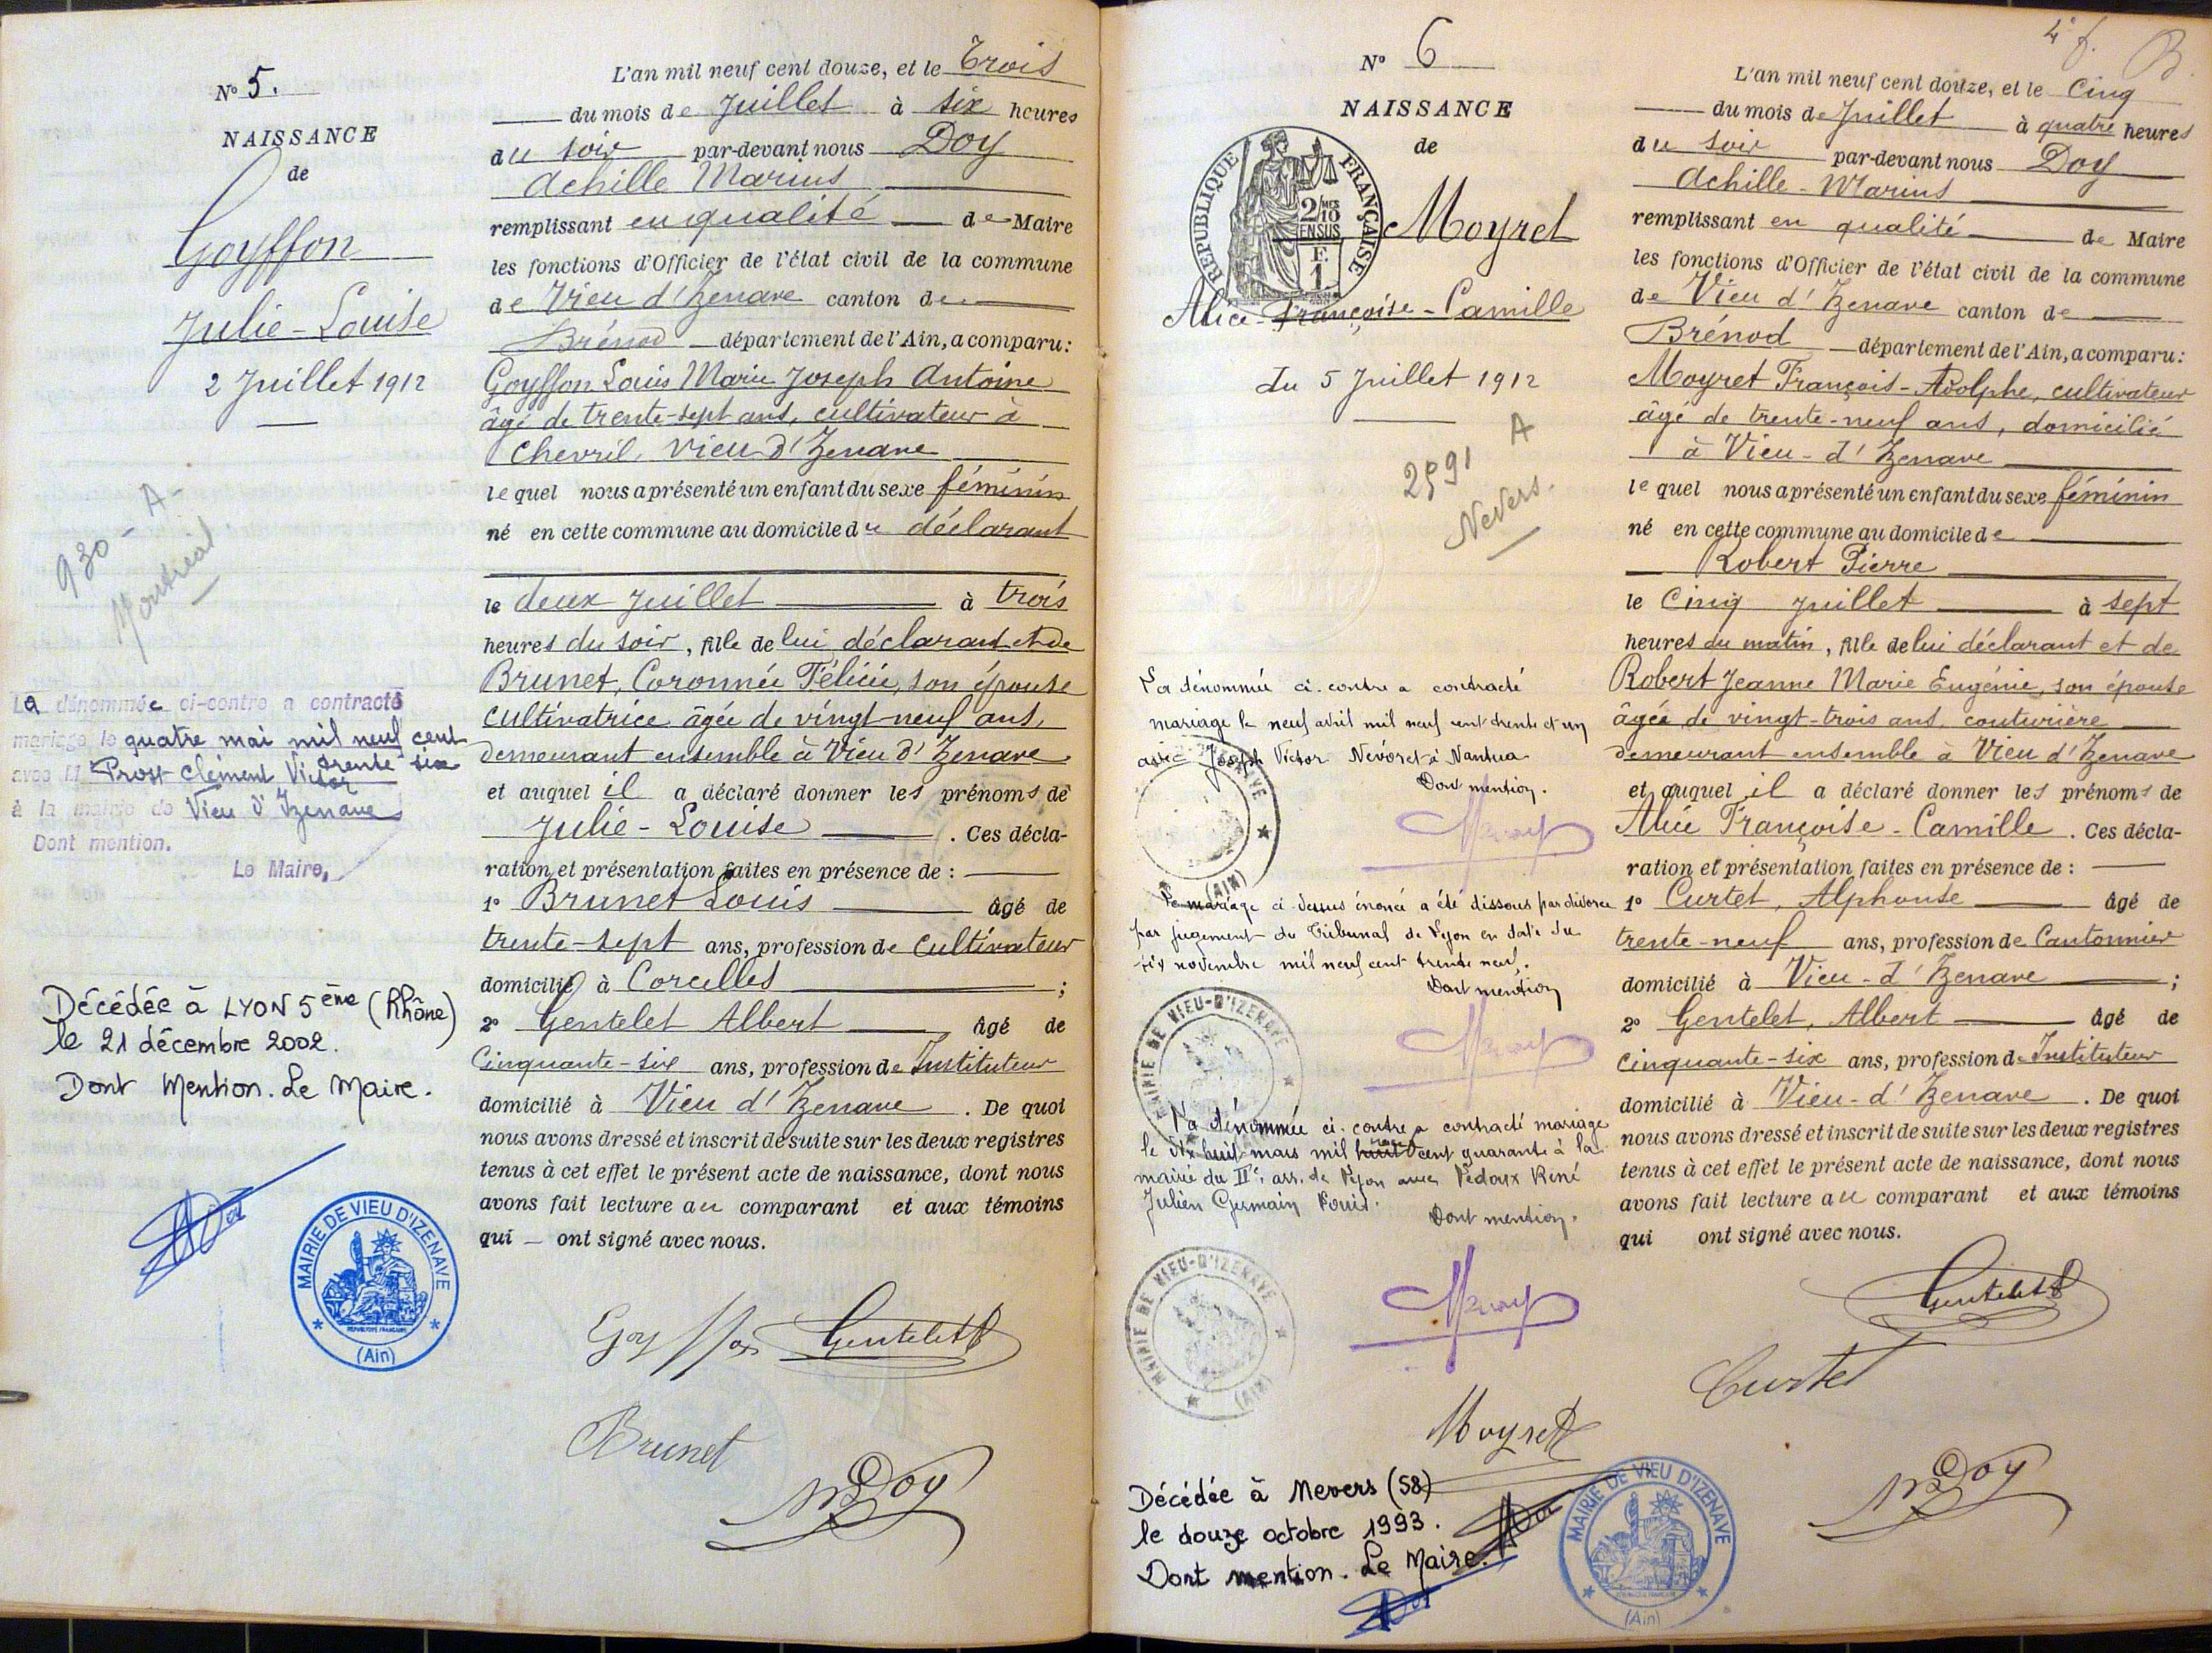 N° 5.
NAISSANCE
de
Goyffon
Julie-Louise
2 Juillet 1912
930 - A -
Montréal
La dénommée ci-contre a contracté
mariage le quatre mai mil neuf cent
trente six
avec M Prost Clément Victor
à la mairie de Vieu d'Izenave
Dont mention.
Le Maire,
Décédée à LYON 5ème (Rhône)
le 21 décembre 2002.
Dont Mention. Le Maire.
MAIRIE DE VIEU D'IZENAVE
RÉPUBLIQUE FRANÇAISE
(Ain)
L'an mil neuf cent douze, et le Trois
du mois de Juillet à six heures
du soir par-devant nous Doy
Achille Marius
remplissant en qualité de Maire
les fonctions d'Officier de l'état civil de la commune
de Vieu d'Izenave canton de
Brénod département de l'Ain, a comparu:
Goyffon Louis Marie Joseph Antoine
âgé de trente-sept ans, cultivateur à
Chevril, Vieu d'Izenave
lequel nous a présenté un enfant du sexe féminin
né en cette commune au domicile du déclarant
le deux Juillet à trois
heures du soir, fille de lui déclarant et de
Brunet, Coronnée Félicie, son épouse
cultivatrice âgée de vingt-neuf ans,
demeurant ensemble à Vieu d'Izenave
et auquel il a déclaré donner les prénoms de
Julie-Louise . Ces décla-
ration et présentation faites en présence de :
1° Brunet Louis âgé de
trente-sept ans, profession de cultivateur
domicilié à Corcelles ;
2° Gentelet Albert âgé de
Cinquante-six ans, profession de Instituteur
domicilié à Vieu d'Izenave . De quoi
nous avons dressé et inscrit de suite sur les deux registres
tenus à cet effet le présent acte de naissance, dont nous
avons fait lecture au comparant et aux témoins
qui — ont signé avec nous.
Goyffon Gentelet
Brunet
Doy
N° 6
NAISSANCE
de
RÉPUBLIQUE FRANÇAISE
2/10MES
EN SUS
F.
1
Moyret
Alice-Françoise-Camille
du 5 Juillet 1912
2591 A
Nevers.
La dénommée ci-contre a contracté
mariage le neuf avril mil neuf cent trente et un
avec Joseph Victor Névoret à Nantua
Dont mention.
(AIN)
Le mariage ci-dessus énoncé a été dissous par divorce
par jugement du Tribunal de Lyon en date du
six novembre mil neuf cent trente neuf.
Dont mention
MAIRIE DE VIEU-D'IZENAVE
La dénommée ci-contre a contracté mariage
le dix huit mars mil neuf cent quarante à la
mairie du IIe arr. de Lyon avec Pedoux René
Julien Germain Louis.
Dont mention.
MAIRIE DE VIEU-D'IZENAVE
(AIN)
Moyret
Décédée à Nevers (58)
le douze octobre 1993.
Dont mention. Le Maire.
MAIRIE DE VIEU D'IZENAVE
(Ain)
4e f.
L'an mil neuf cent douze, et le Cinq
du mois de Juillet à quatre heures
du soir par-devant nous Doy
Achille-Marius
remplissant en qualité de Maire
les fonctions d'Officier de l'état civil de la commune
de Vieu d'Izenave canton de
Brénod département de l'Ain, a comparu:
Moyret François-Adolphe, cultivateur
âgé de trente-neuf ans, domicilié
à Vieu-d'Izenave
lequel nous a présenté un enfant du sexe féminin
né en cette commune au domicile de
Robert Pierre
le Cinq Juillet à sept
heures du matin, fille de lui déclarant et de
Robert Jeanne Marie Eugénie, son épouse
âgée de vingt-trois ans, couturière
demeurant ensemble à Vieu d'Izenave
et auquel il a déclaré donner les prénoms de
Alice Françoise-Camille . Ces décla-
ration et présentation faites en présence de :
1° Curtet, Alphonse âgé de
trente-neuf ans, profession de Cantonnier
domicilié à Vieu-d'Izenave ;
2° Gentelet, Albert âgé de
cinquante-six ans, profession de Instituteur
domicilié à Vieu-d'Izenave . De quoi
nous avons dressé et inscrit de suite sur les deux registres
tenus à cet effet le présent acte de naissance, dont nous
avons fait lecture au comparant et aux témoins
qui ont signé avec nous.
Gentelet
Curtet
Doy